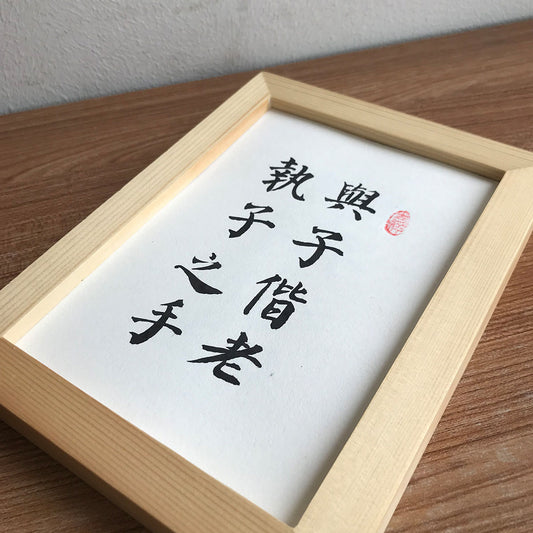 與子偕老
執子之手